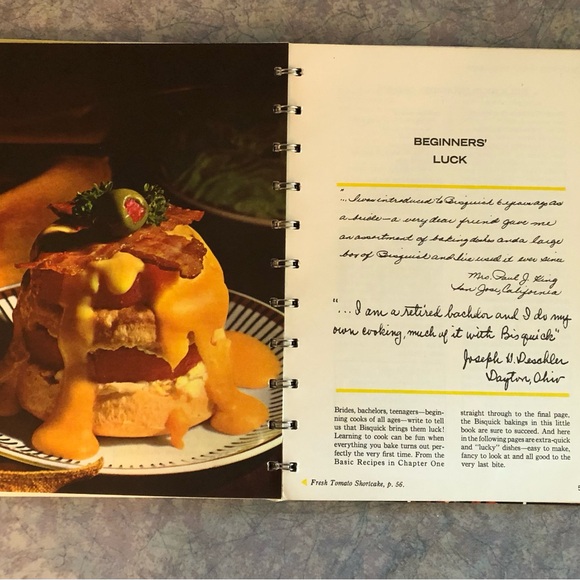 BEGINNERS'
LUCK
"...I was introduced to Bisquick 6 years ago as
a bride—a very dear friend gave me
an assortment of baking dishes and a large
box of Bisquick and I've used it ever since
Mrs. Paul J. King
San Jose, California
"...I am a retired bachelor and I do my
own cooking, much of it with Bisquick"
Joseph H. Deschler
Dayton, Ohio
Brides, bachelors, teenagers—begin-
ning cooks of all ages—write to tell
us that Bisquick brings them luck!
Learning to cook can be fun when
everything you bake turns out per-
fectly the very first time. From the
Basic Recipes in Chapter One
straight through to the final page,
the Bisquick bakings in this little
book are sure to succeed. And here
in the following pages are extra-quick
and "lucky" dishes—easy to make,
fancy to look at and all good to the
very last bite.
Fresh Tomato Shortcake, p. 56.